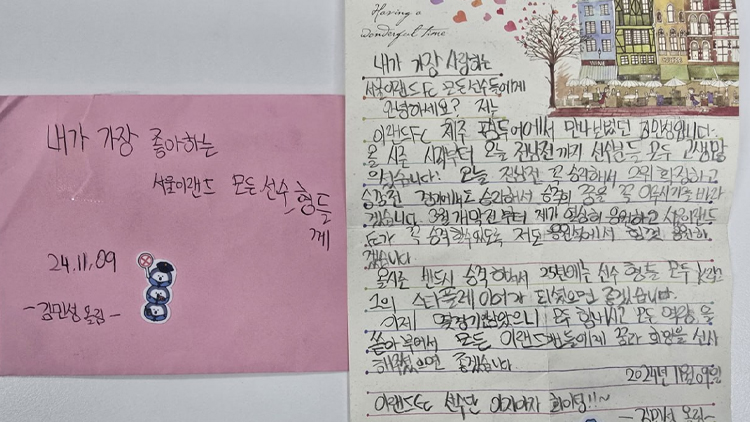 내가 가장 좋아하는
서울이랜드 모든 선수 형들
께
24.11.09
-김민성 올림-
Having a
wonderful time
내가 가장 사랑하는
서울이랜드FC 모든선수들에게
안녕하세요? 저는
이랜드FC 제주 팸투어에서 만나뵈었던 김민성입니다.
올 시즌 시작부터 오늘 전남전까지 선수분들 모두 고생많
으셨습니다! 오늘 전남전 꼭 승리해서 2위 확정하고
승강전 경기에서도 승리해서 승격의 꿈을 꼭 이루시기를 바라
겠습니다. 3월 개막전부터 제가 열심히 응원하고 서울이랜드
FC가 꼭 승격할수있도록 저도 응원석에서 힘껏 응원하
겠습니다
올시즌 반드시 승격하셔서 25년에는 선수 형들 모두 K리그
1의 스타플레이어가 되셨으면 좋겠습니다.
이제 몇경기 남았으니 모두 힘내시고 모든 역량을
쏟아부어서 모든 이랜드팬들에게 꿈과 희망을 선사
해주셨으면 좋겠습니다
2024년 11월 09일
이랜드FC 선수단 아자아자 화이팅!!~
-김민성 올림-